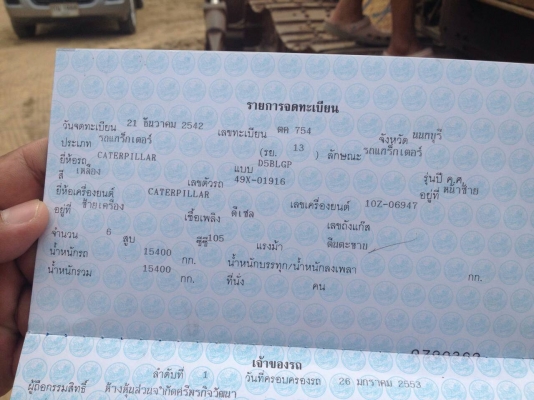 รายการจดทะเบียน
วันจดทะเบียน 21 ธันวาคม 2542 เลขทะเบียน ตค 754 จังหวัด นนทบุรี
ประเภท รถแทร็กเตอร์ (รย. 13 ) ลักษณะ รถแทร็กเตอร์
ยี่ห้อรถ CATERPILLAR แบบ D5BLGP รุ่นปี ค.ศ.
สี เหลือง เลขตัวรถ 49X-01916 อยู่ที่ หน้าซ้าย
ยี่ห้อเครื่องยนต์ CATERPILLAR เลขเครื่องยนต์ 10Z-06947
อยู่ที่ ซ้ายเครื่อง เชื้อเพลิง ดีเซล เลขถังแก๊ส
จำนวน 6 สูบ ซีซี 105 แรงม้า ตีนตะขาบ
น้ำหนักรถ 15400 กก. น้ำหนักบรรทุก/น้ำหนักลงเพลา กก.
น้ำหนักรวม 15400 กก. ที่นั่ง คน
เจ้าของรถ
ลำดับที่ 1 วันที่ครอบครองรถ 26 มกราคม 2553
ผู้ถือกรรมสิทธิ์ ห้างหุ้นส่วนจำกัดศรีพรกิจวัฒนา